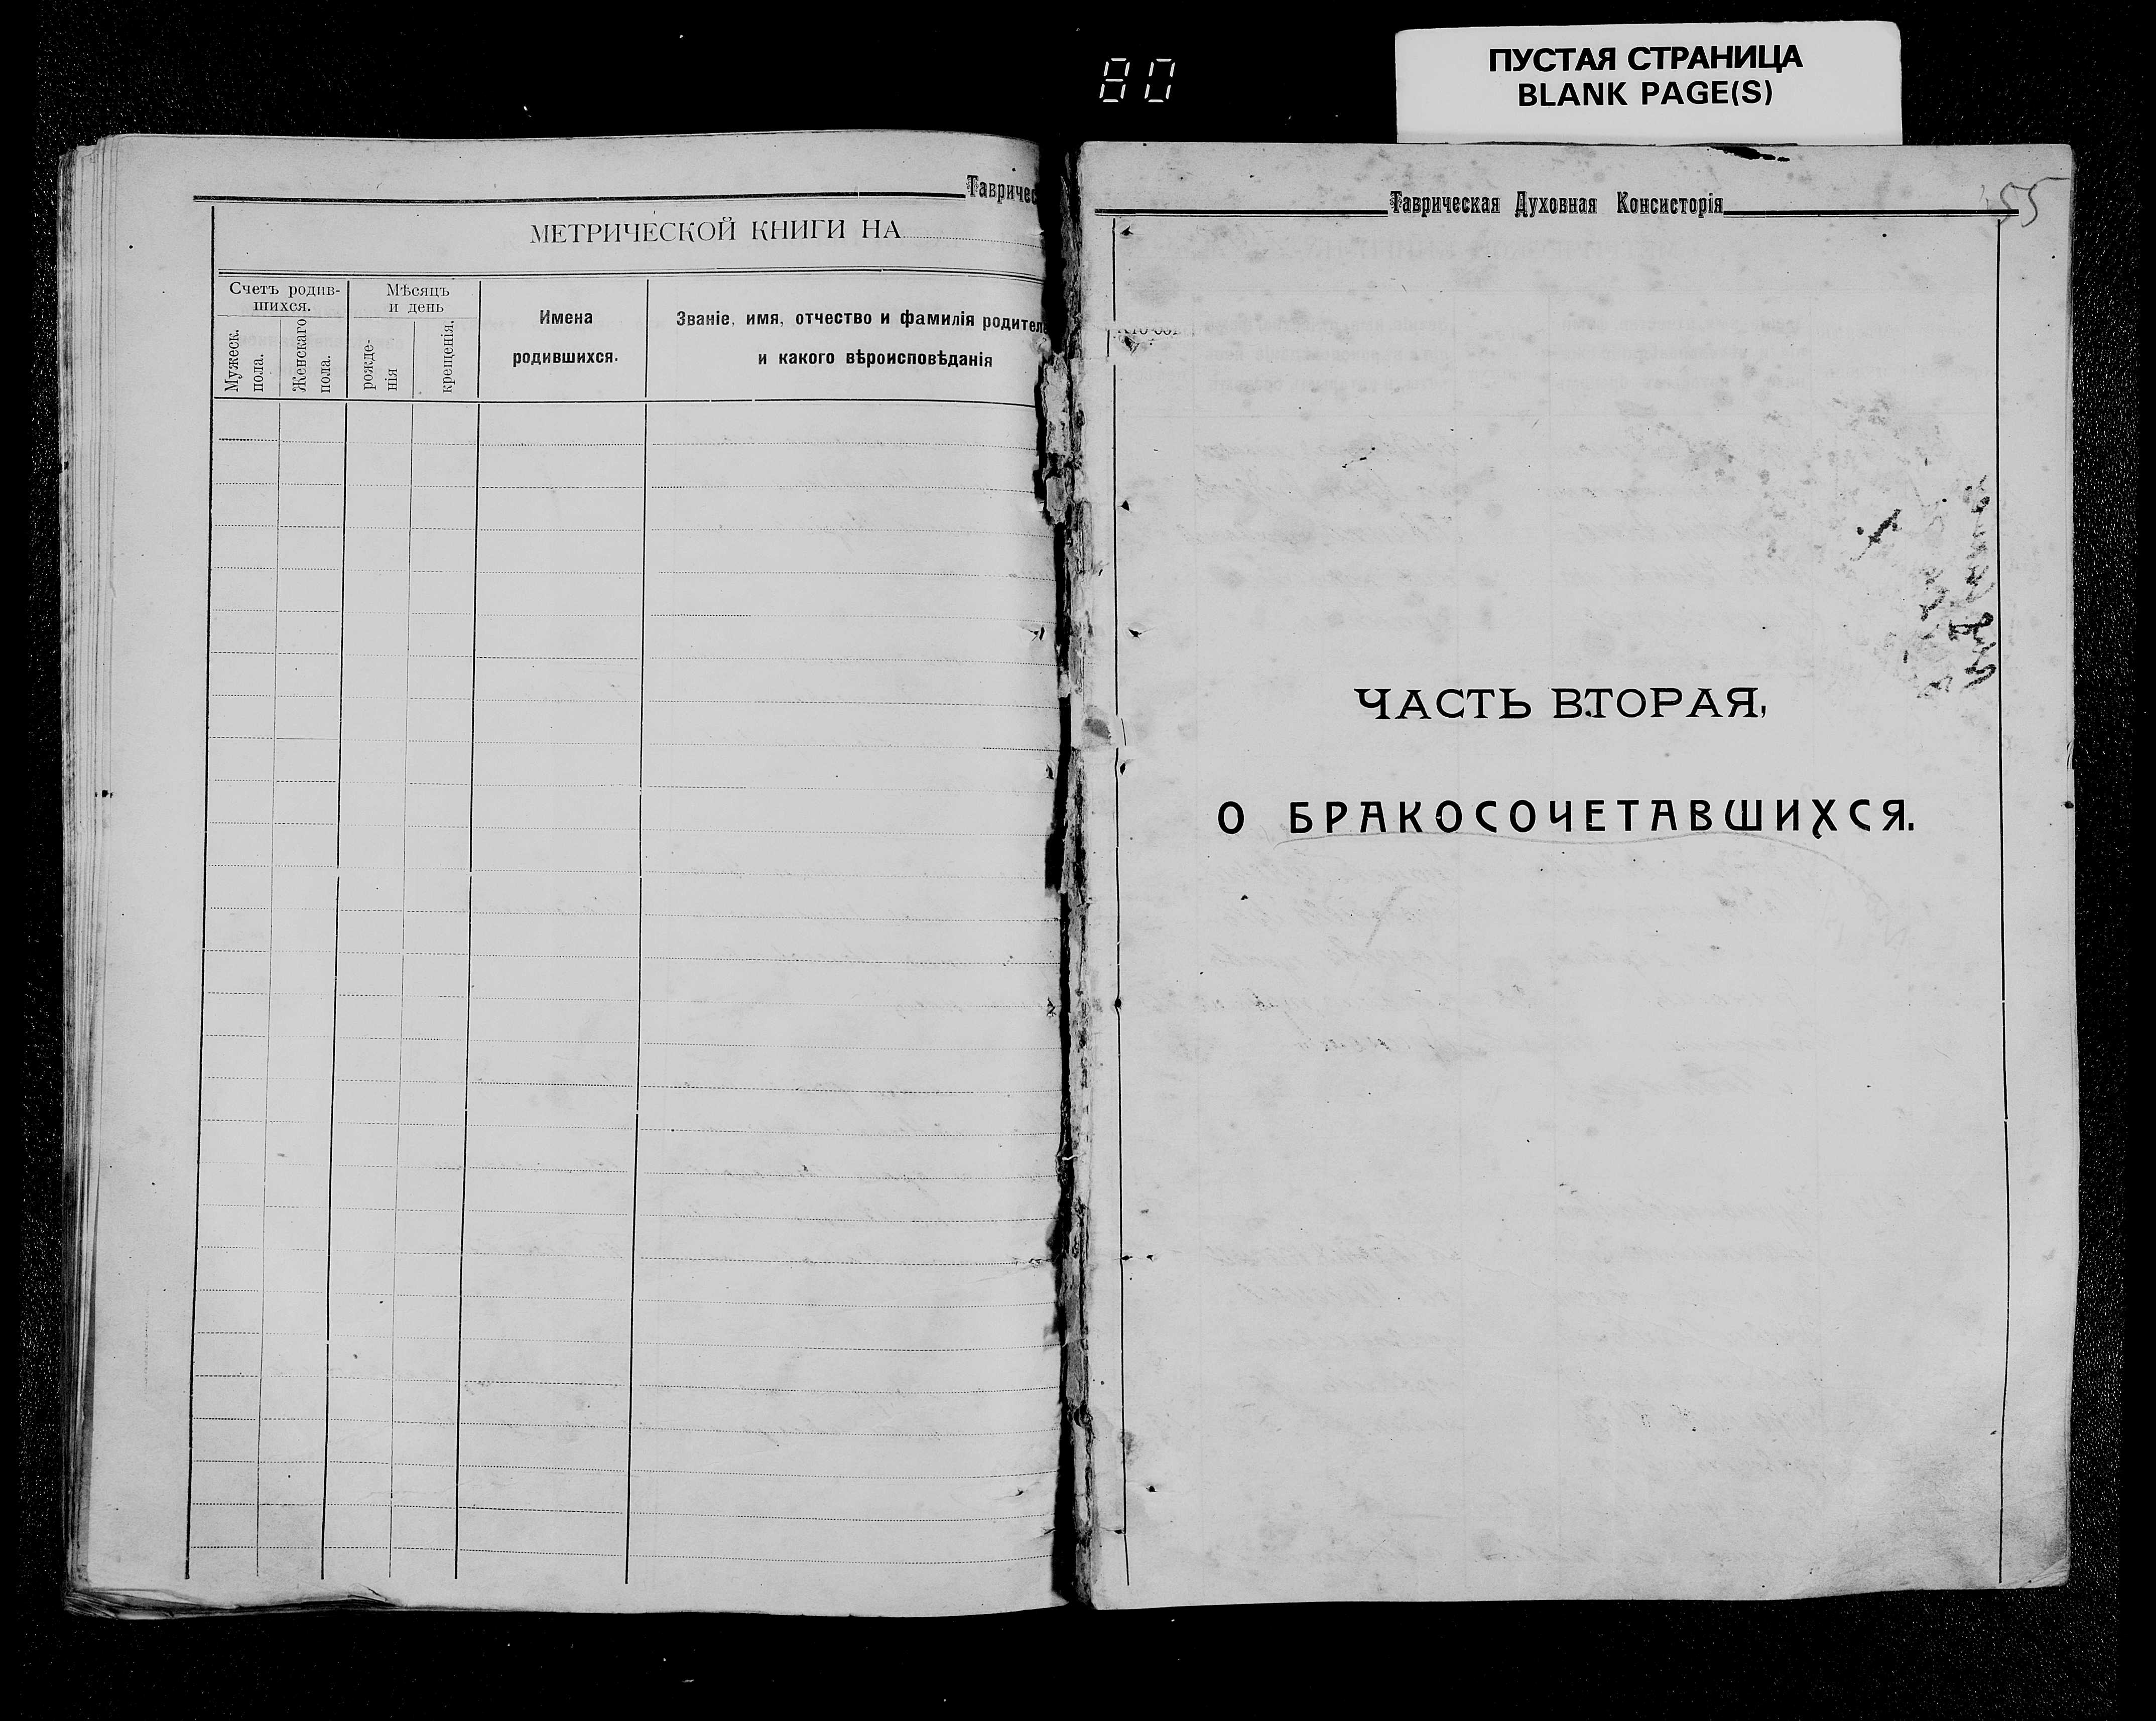 80
ПУСТАЯ СТРАНИЦА
BLANK PAGE(S)
МЕТРИЧЕСКОЙ КНИГИ НА
Счетъ родив-
шихся.
Мужеск.
пола.
Женскаго
пола.
Мѣсяцъ
и день
рожде-
нія
крещенія.
Имена
родившихся.
Званіе, имя, отчество и фамилія
и какого вѣроисповѣданія
Таврическая Духовная Консисторія
55
ЧАСТЬ ВТОРАЯ,
О БРАКОСОЧЕТАВШИХСЯ.